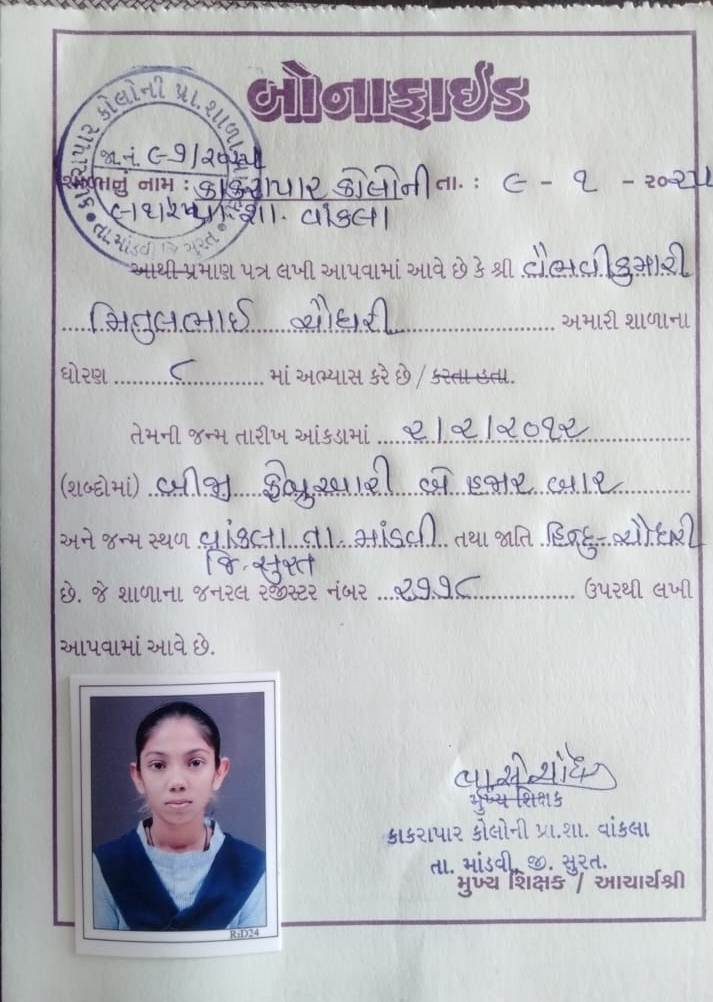 બોનાફાઈડ
કાકરાપાર કોલોની પ્રા. શાળા
જા.નં. ૯-૧/૨૦૨૫
તા. માંડવી જિ સુરત
શાળાનું નામ : કાકરાપાર કોલોની તા. : ૯ - ૧ - ૨૦૨૫
પ્રા. શા. વાંકલા
આથી પ્રમાણ પત્ર લખી આપવામાં આવે છે કે શ્રી વૈભવીકુમારી
મિતુલભાઈ ચૌધરી અમારી શાળાના
ધોરણ ૮ માં અભ્યાસ કરે છે / કરતા હતા.
તેમની જન્મ તારીખ આંકડામાં ૨/૨/૨૦૧૨
(શબ્દોમાં) બીજી ફેબ્રુઆરી બે હજાર બાર
અને જન્મ સ્થળ વાંકલા તા. માંડવી તથા જાતિ હિન્દુ-ચૌધરી
જિ. સુરત
છે. જે શાળાના જનરલ રજીસ્ટર નંબર ૨૭૧૮ ઉપરથી લખી
આપવામાં આવે છે.
RiD24
મુખ્ય શિક્ષક
કાકરાપાર કોલોની પ્રા.શા. વાંકલા
તા. માંડવી, જી. સુરત.
મુખ્ય શિક્ષક / આચાર્યશ્રી